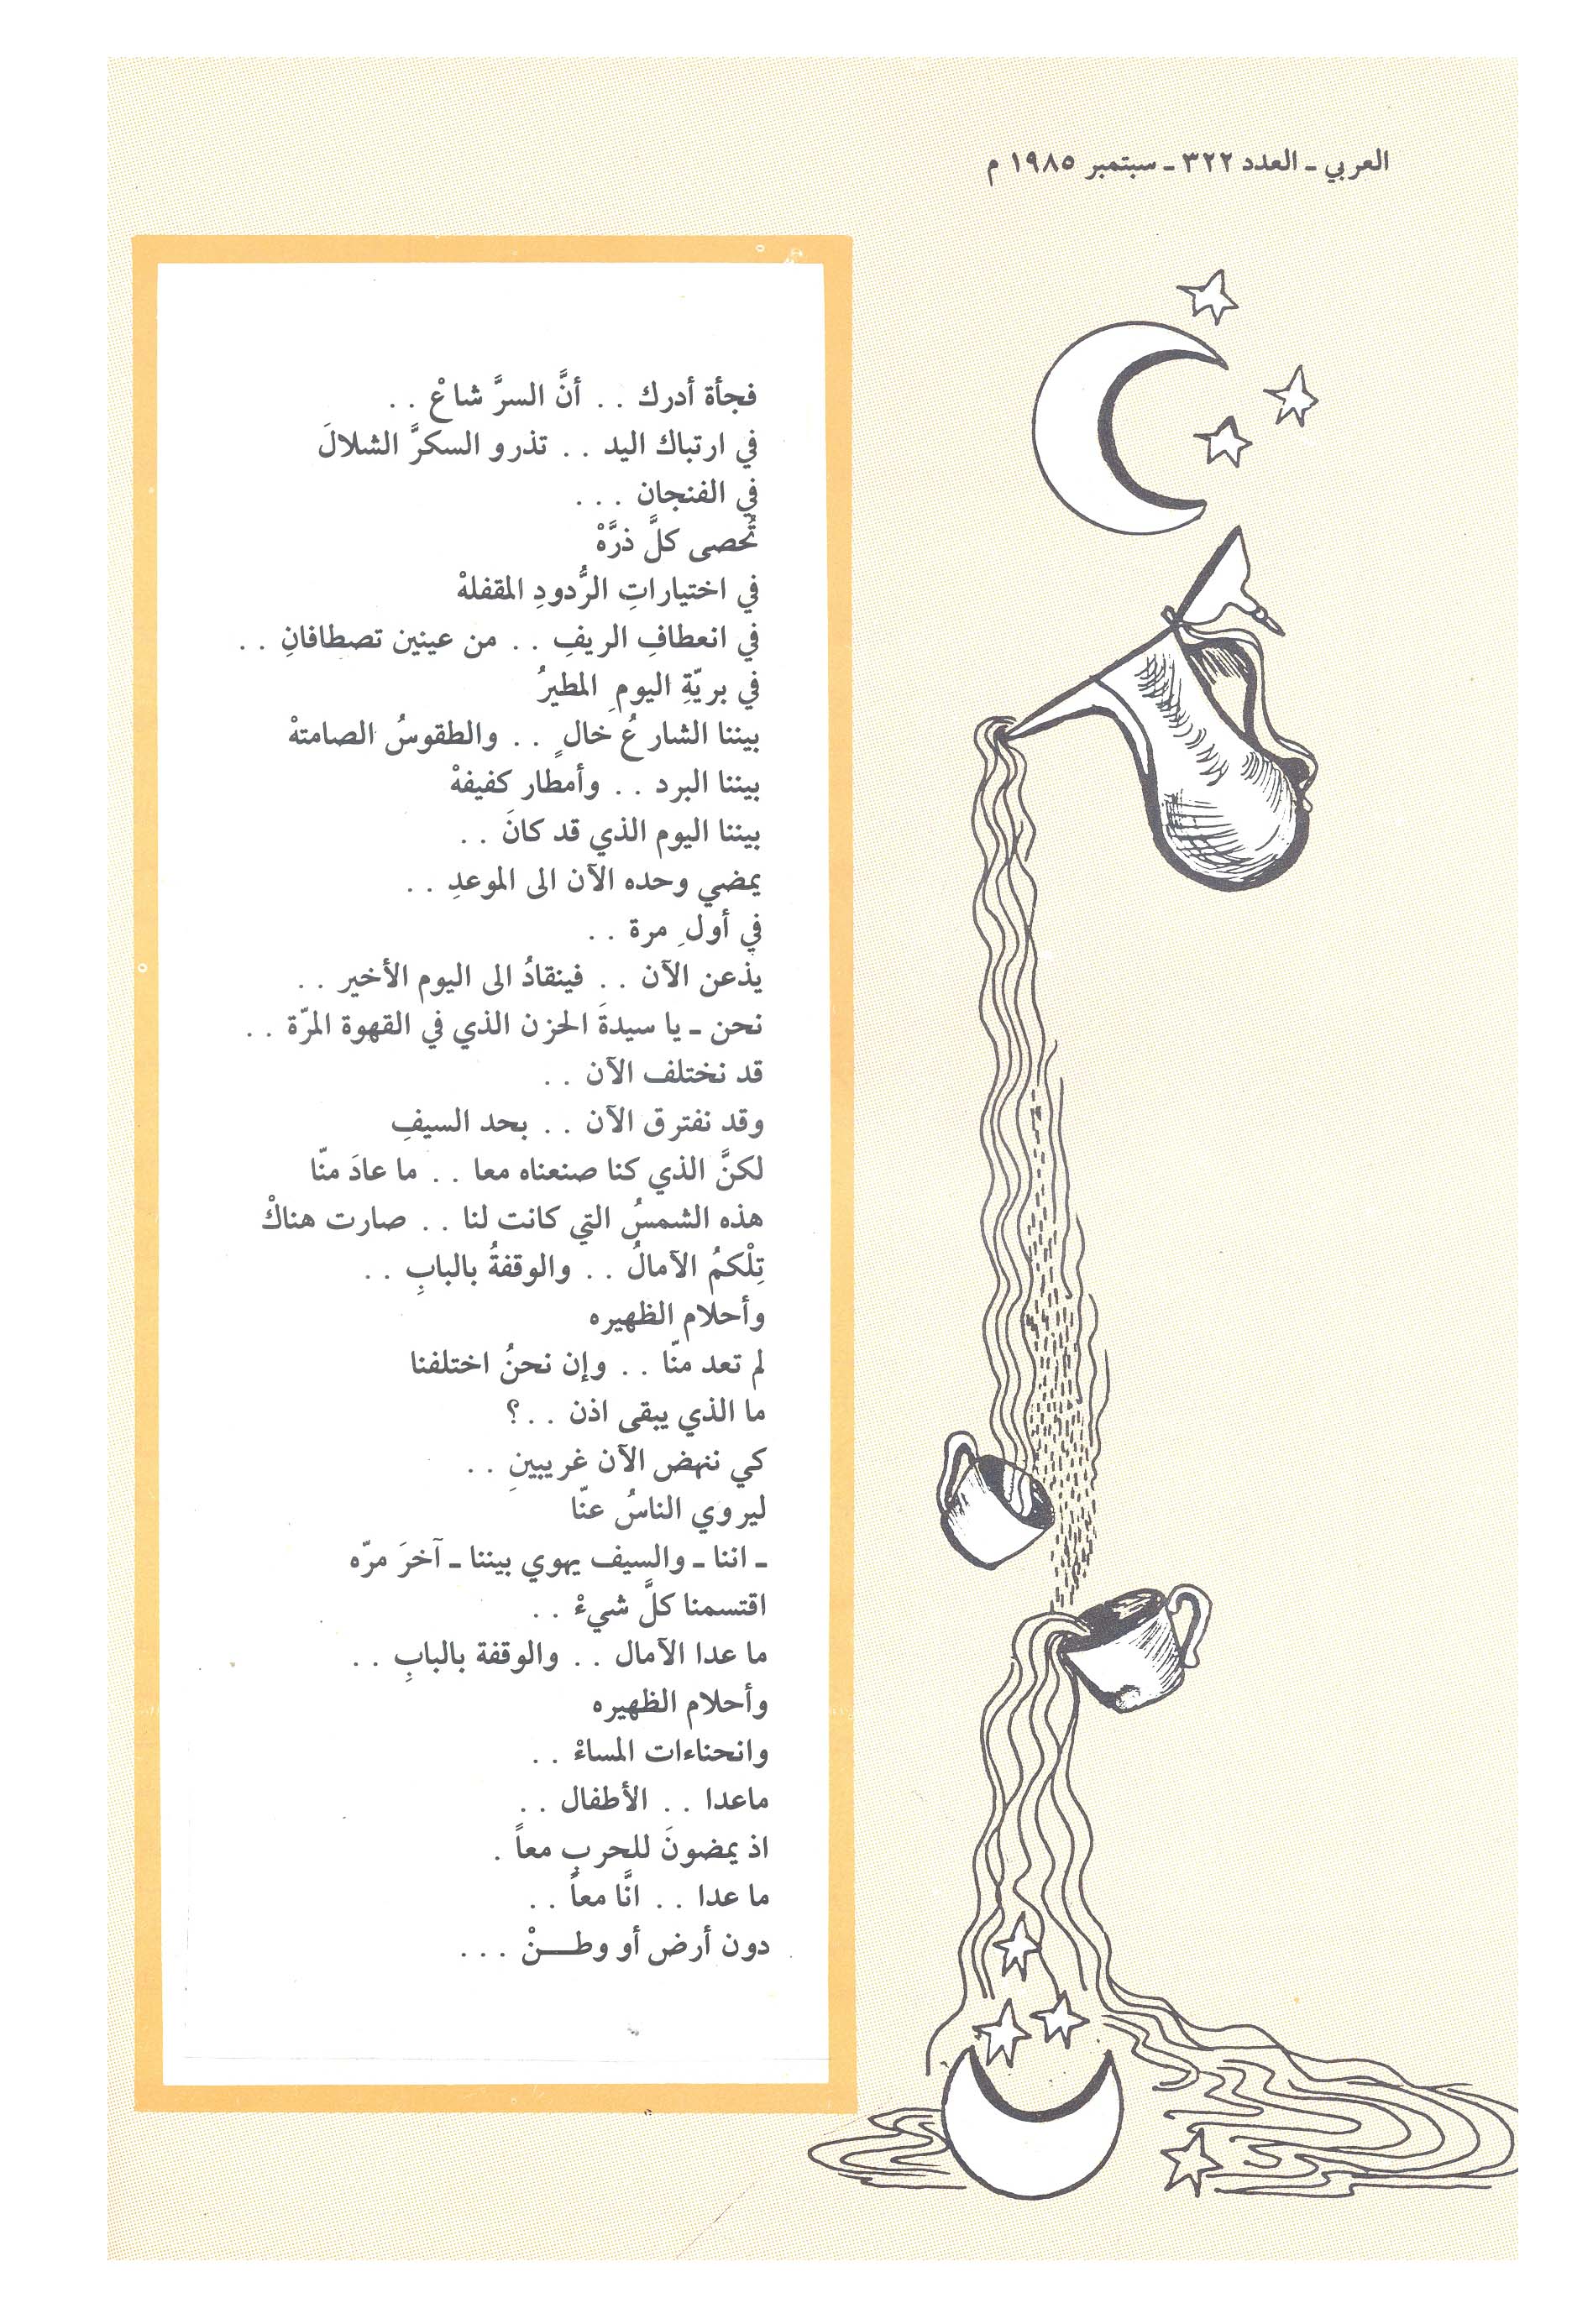 العربي ـ العدد ٣٢٢ ـ سبتمبر ١٩٨٥ م
فجأة أدرك . . أنَّ السرَّ شاعْ . .
في ارتباك اليد . . تذرو السكرَّ الشلالَ
في الفنجان . . .
تُحصى كلَّ ذرَّهْ
في اختياراتِ الرُّدودِ المقفلهْ
في انعطافِ الريفِ . . من عينين تصطافانِ . .
في بريّةِ اليومِ المطيرُ
بيننا الشارعُ خالٍ . . والطقوسُ الصامتهْ
بيننا البرد . . وأمطار كفيفهْ
بيننا اليوم الذي قد كانَ . .
يمضي وحده الآن الى الموعدِ . .
في أولِ مرة . .
يذعن الآن . . فينقادُ الى اليوم الأخير . .
نحن ـ يا سيدةَ الحزن الذي في القهوة المرّة . .
قد نختلف الآن . .
وقد نفترق الآن . . بحد السيفِ
لكنَّ الذي كنا صنعناه معا . . ما عادَ منّا
هذه الشمسُ التي كانت لنا . . صارت هناكْ
تِلْكمُ الآمالُ . . والوقفةُ بالبابِ . .
وأحلام الظهيره
لم تعد منّا . . وإن نحنُ اختلفنا
ما الذي يبقى اذن . . ؟
كي ننهض الآن غريبينِ . .
ليروي الناسُ عنّا
ـ اننا ـ والسيف يهوي بيننا ـ آخرَ مرّه
اقتسمنا كلَّ شيءْ . .
ما عدا الآمال . . والوقفة بالبابِ . .
وأحلام الظهيره
وانحناءات المساءْ . .
ماعدا . . الأطفال . .
اذ يمضونَ للحربِ معاً .
ما عدا . . انَّا معاً . .
دون أرض أو وطــنْ . . .